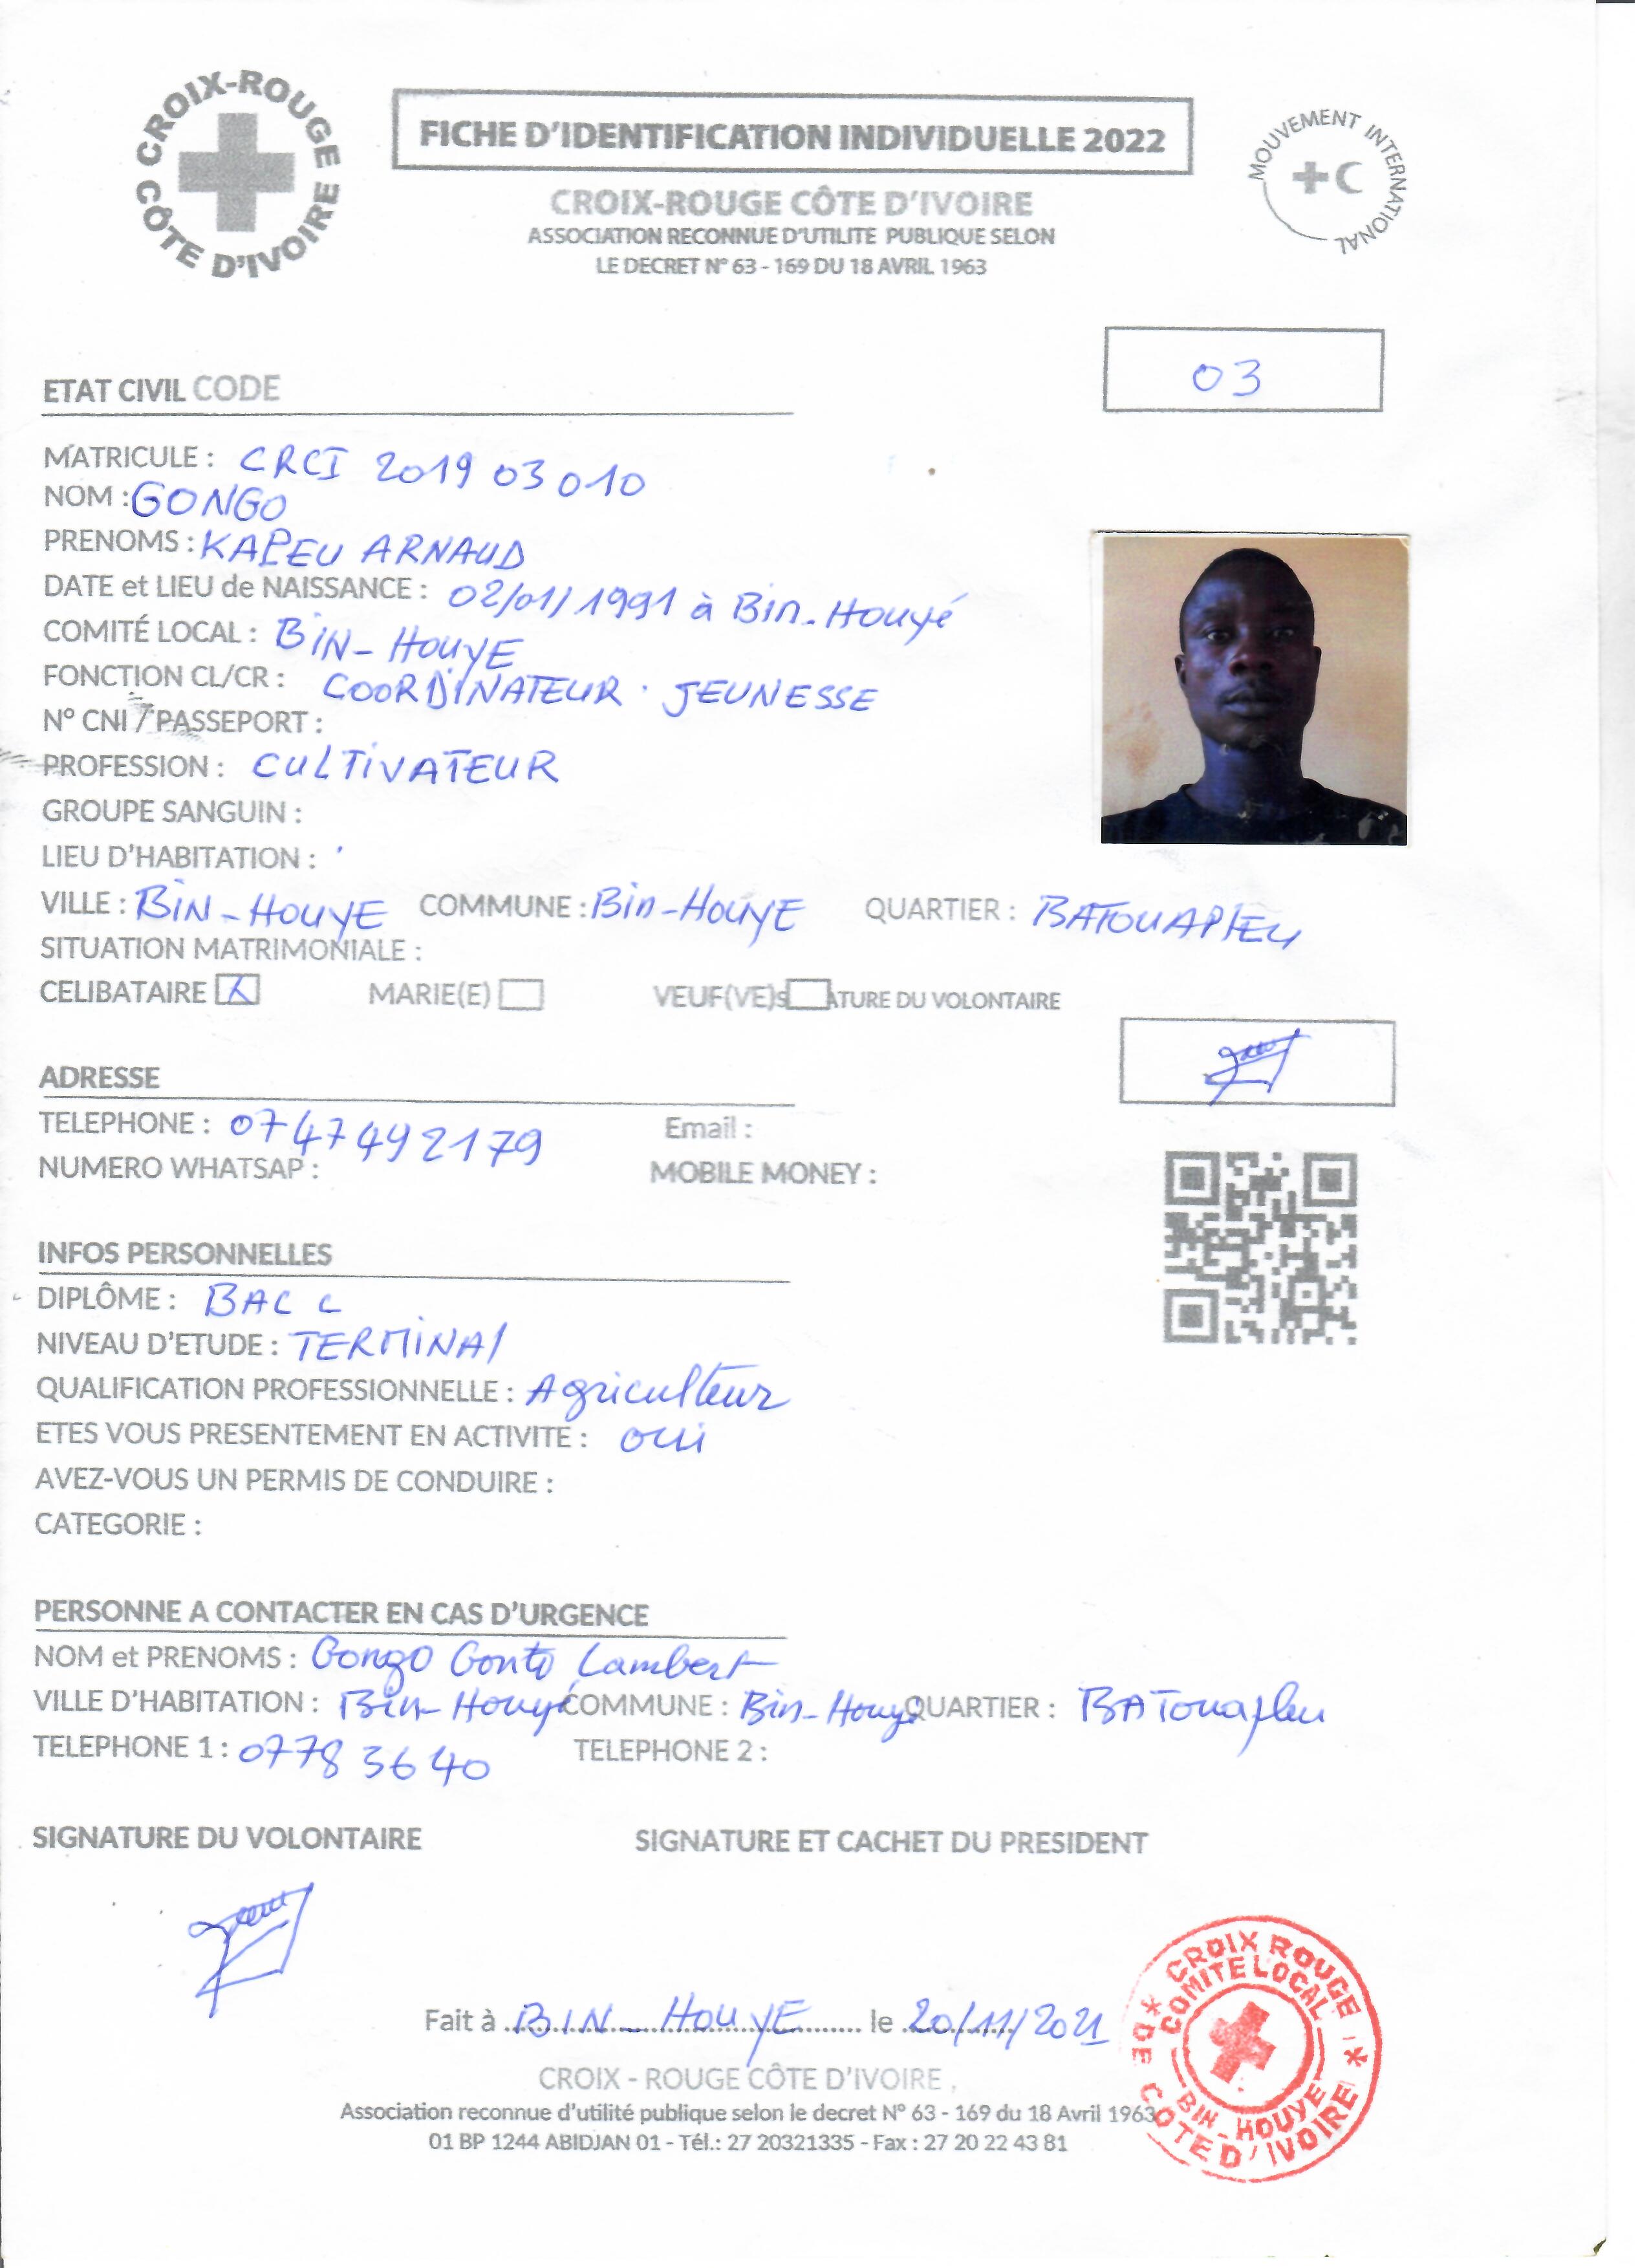 CROIX-ROUGE CÔTE D'IVOIRE
FICHE D'IDENTIFICATION INDIVIDUELLE 2022
MOUVEMENT INTERNATIONAL
CROIX-ROUGE CÔTE D'IVOIRE
ASSOCIATION RECONNUE D'UTILITE PUBLIQUE SELON
LE DECRET N° 63 - 169 DU 18 AVRIL 1963
03
ETAT CIVIL CODE
MATRICULE : CRCI 2019 03 010
NOM : GONGO
PRENOMS : KAPEU ARNAUD
DATE et LIEU de NAISSANCE : 02/01/1991 à Bin-Houyé
COMITÉ LOCAL : BIN-HOUYE
FONCTION CL/CR : COORDINATEUR JEUNESSE
N° CNI / PASSEPORT :
PROFESSION : CULTIVATEUR
GROUPE SANGUIN :
LIEU D'HABITATION :
VILLE : BIN-HOUYE COMMUNE : Bin-HOUYE QUARTIER : BATOUAPlEU
SITUATION MATRIMONIALE :
CELIBATAIRE X MARIE(E) VEUF(VE)S ATURE DU VOLONTAIRE
ADRESSE
TELEPHONE : 0747492179 Email :
NUMERO WHATSAP : MOBILE MONEY :
INFOS PERSONNELLES
DIPLÔME : BAC
NIVEAU D'ETUDE : TERMINAl
QUALIFICATION PROFESSIONNELLE : Agriculteur
ETES VOUS PRESENTEMENT EN ACTIVITE : oui
AVEZ-VOUS UN PERMIS DE CONDUIRE :
CATEGORIE :
PERSONNE A CONTACTER EN CAS D'URGENCE
NOM et PRENOMS : Gongo Gonto Lambert
VILLE D'HABITATION : Bin-Houyé COMMUNE : Bin-Houyé QUARTIER : BATouapleu
TELEPHONE 1 : 0778 3640 TELEPHONE 2 :
SIGNATURE DU VOLONTAIRE SIGNATURE ET CACHET DU PRESIDENT
Fait à BIN-HOUYE le 20/11/2021
CROIX - ROUGE CÔTE D'IVOIRE
Association reconnue d'utilité publique selon le decret N° 63 - 169 du 18 Avril 1963
01 BP 1244 ABIDJAN 01 - Tél.: 27 20321335 - Fax : 27 20 22 43 81
CROIX ROUGE DE CÔTE D'IVOIRE
COMITE LOCAL BIN-HOUYE